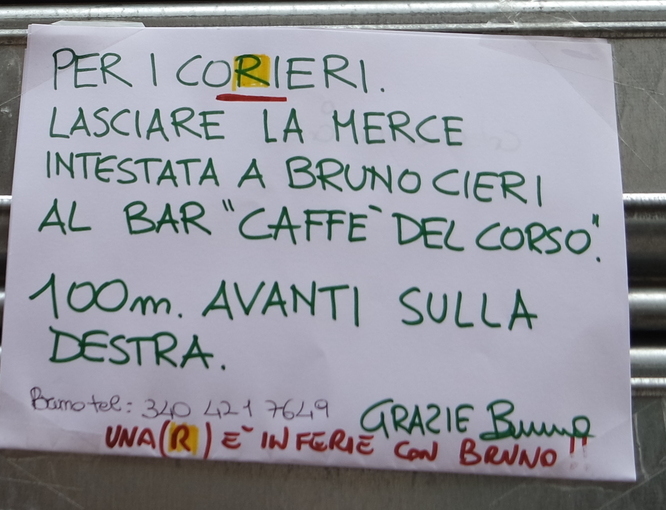 PER I CORIERI.
LASCIARE LA MERCE
INTESTATA A BRUNO CIERI
AL BAR "CAFFE` DEL CORSO".
100m. AVANTI SULLA
DESTRA.
Bruno tel: 340 421 7649
GRAZIE Bruno
UNA (R) E` IN FERIE CON BRUNO!!